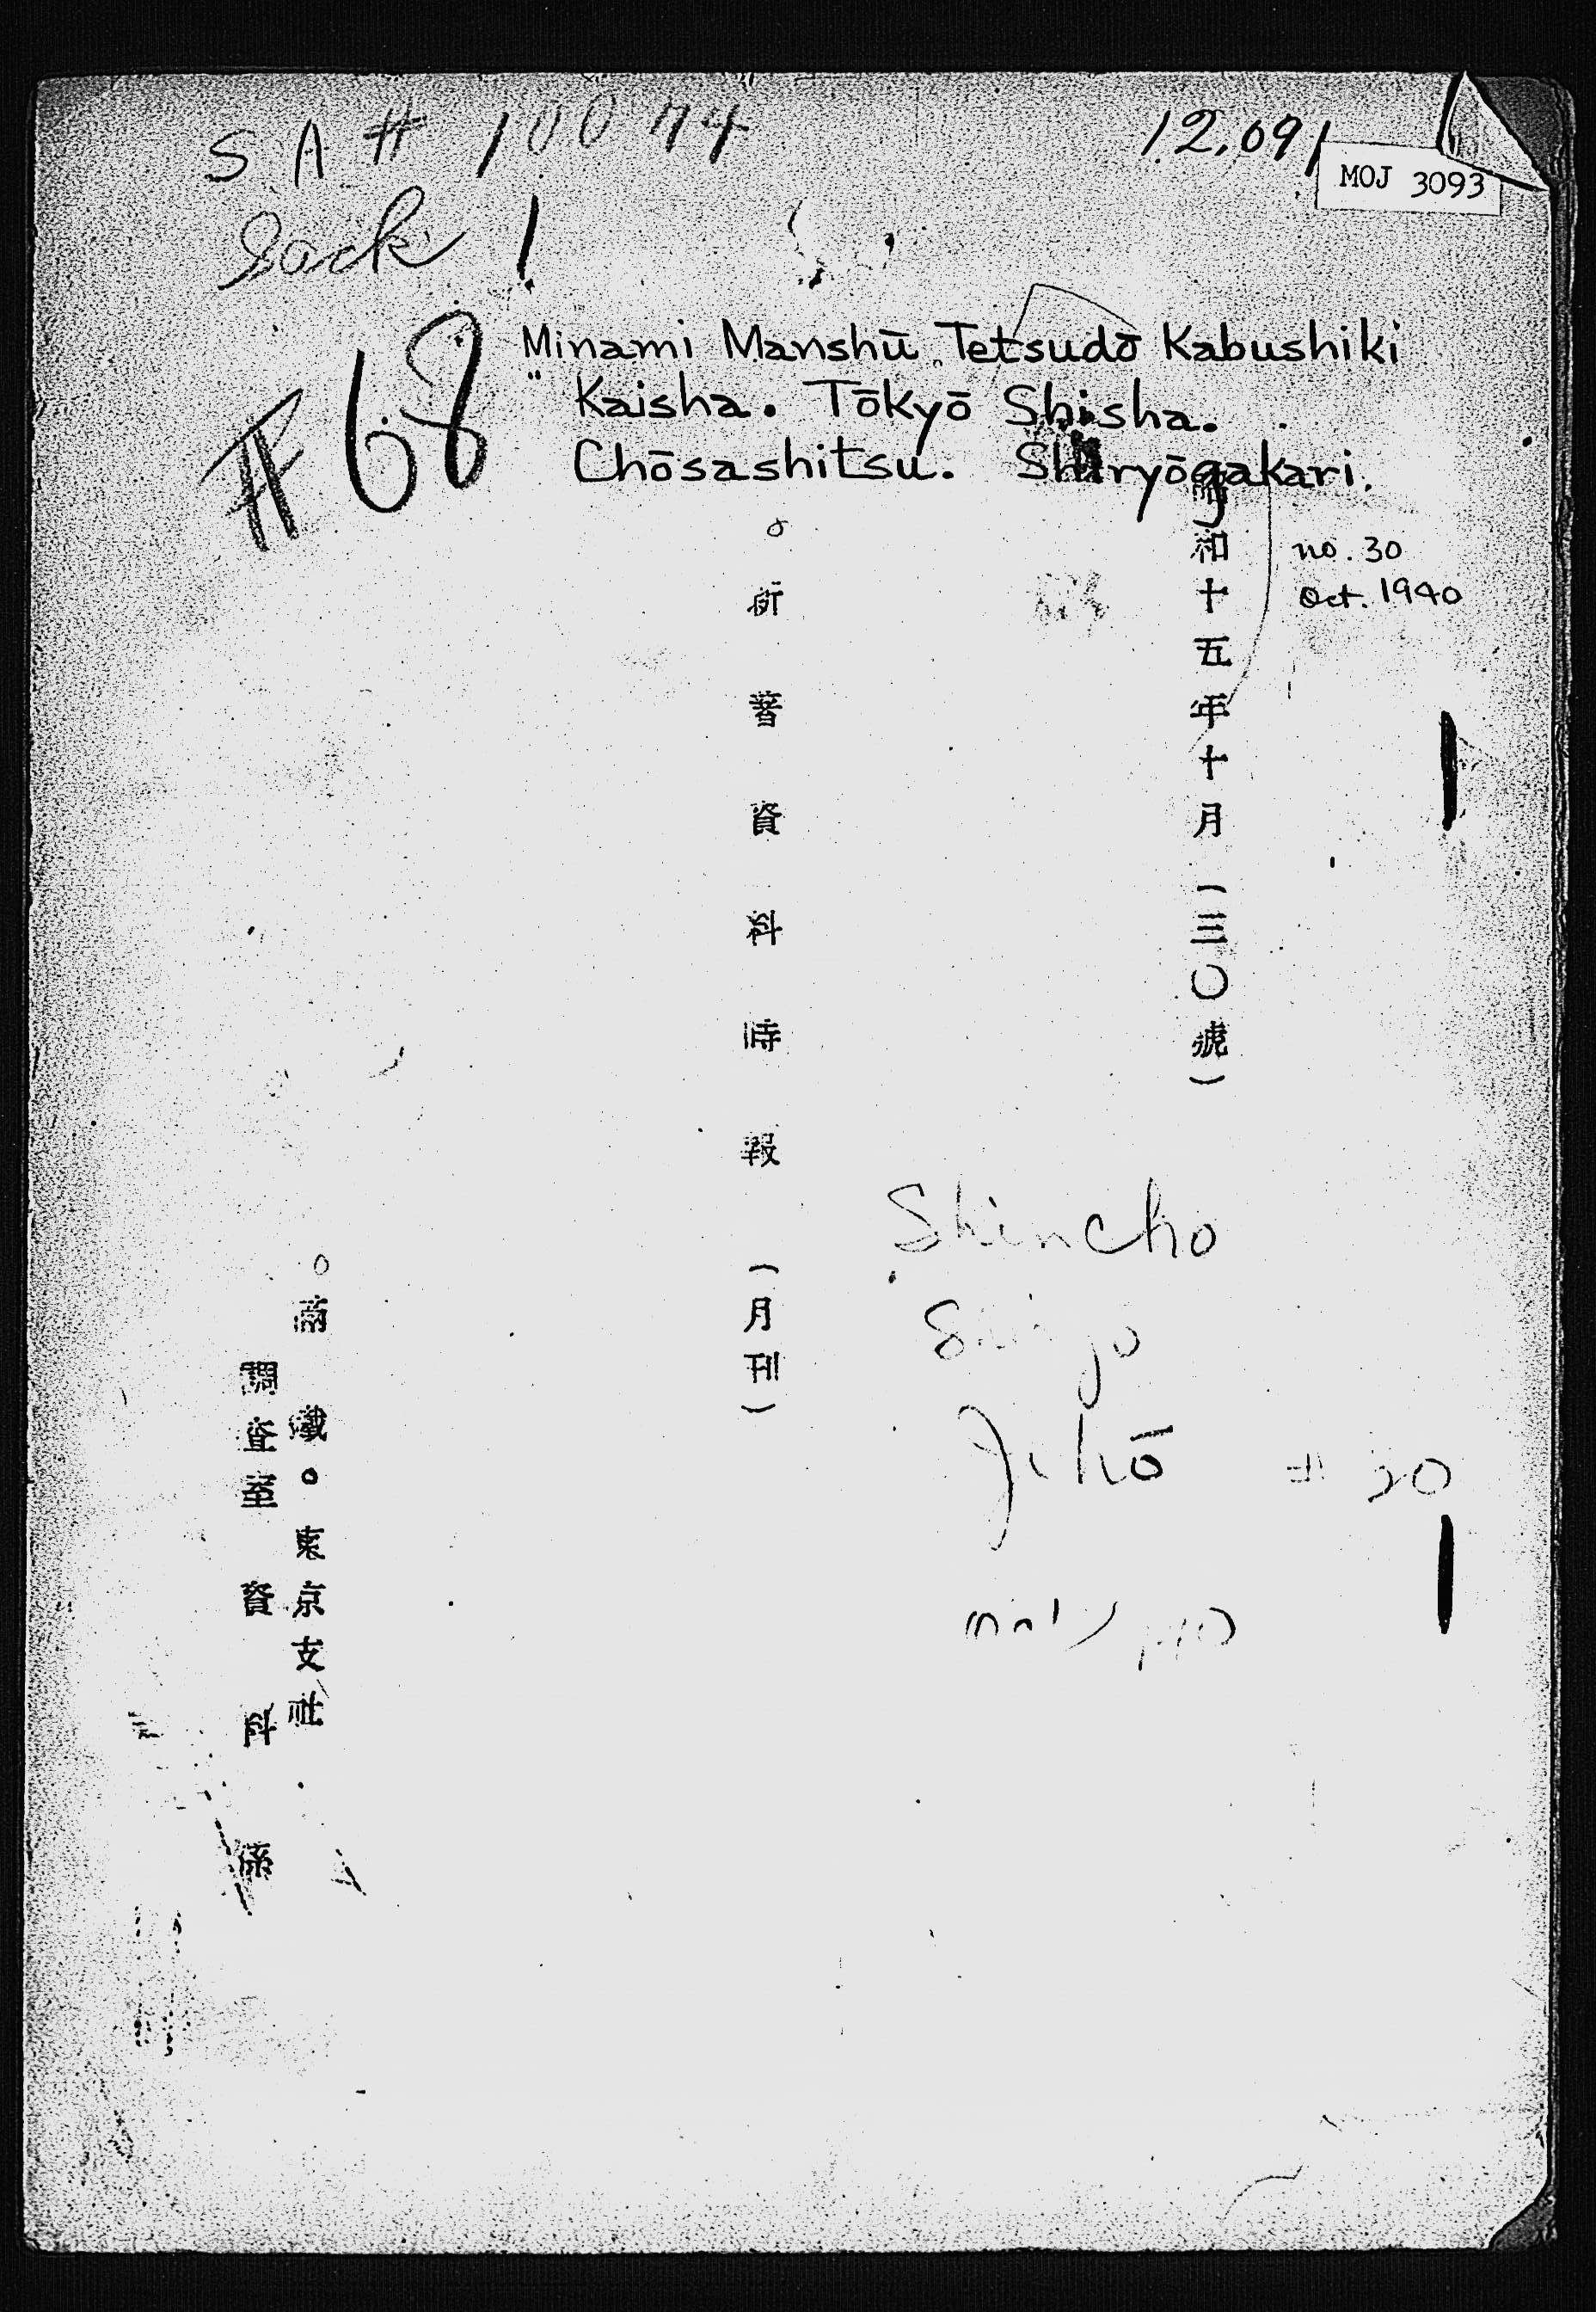 SA # 10074
12,091
MOJ 3093
Sack 1
#68
Minami Manshū Tetsudō Kabushiki
Kaisha. Tōkyō Shisha.
Chōsashitsu. Shiryōgakari.
no. 30
Oct. 1940
和十五年十月(三〇號)
資料時報(月刊)
Shincho
Jihō
東京支社
調査室資料係